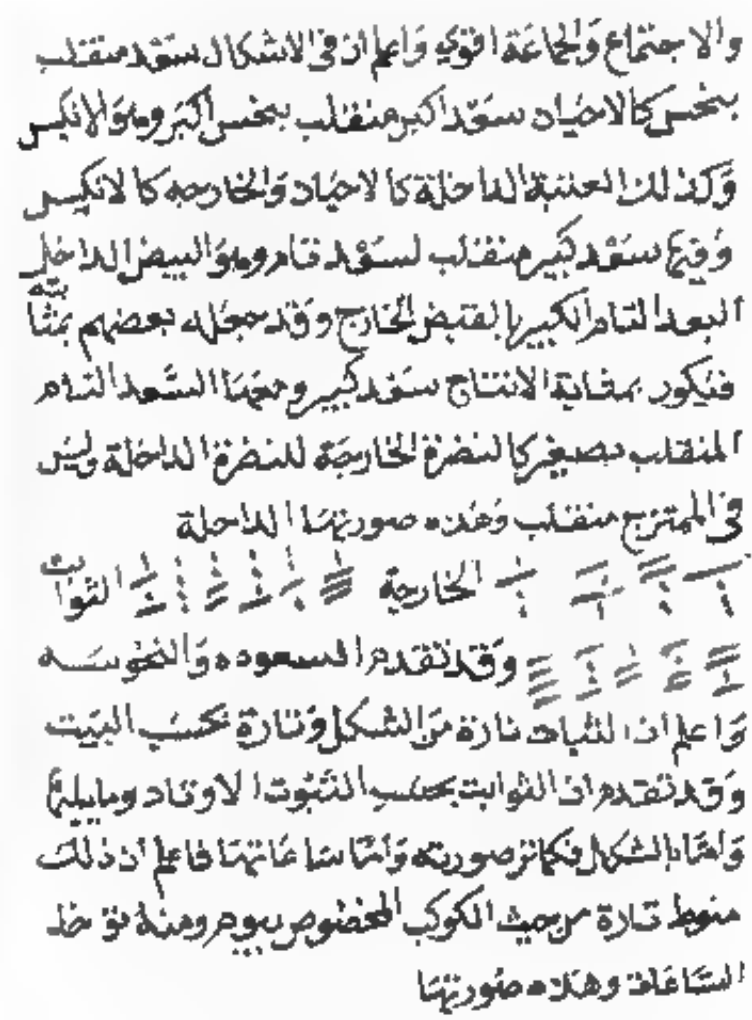 والاجتماع والجماعة اقوي واعلم ان في الاشكال سعد منقلب
بنحس كالاحيان سعد اكبر منقلب بنحس اكبر وهو الانكيس
وكذلك العتبة الداخلة كالاحيان والخارجه كالانكيس
سعد كبير منقلب لسعد تام وهو البيض الداخل
البعد التام الكبير القبض الخارج وقد جعله بعضهم بمثابته
فيكون بمثابة الانتاج سعد كبير ومعها السعد التام
المنقلب بصغير كالنضرة الخارجة للنضرة الداخلة وليس
في الممتزج منقلب وهذه صورتها الداخلة
الخارجة الثوابت
وقد تقدم السعوده والنحوسه
واعلم ان الثبات تارة من الشكل وتارة بحسب البيت
وقد تقدم ان الثوابت بحسب الثبوت الاوتاد وما يليها
واما بالشكل فكما تر صورته واما ساعاتها فاعلم ان ذلك
منوط تارة من حيث الكوكب المخصوص بيوم ومنه توخذ
الساعات وهذه صورتها